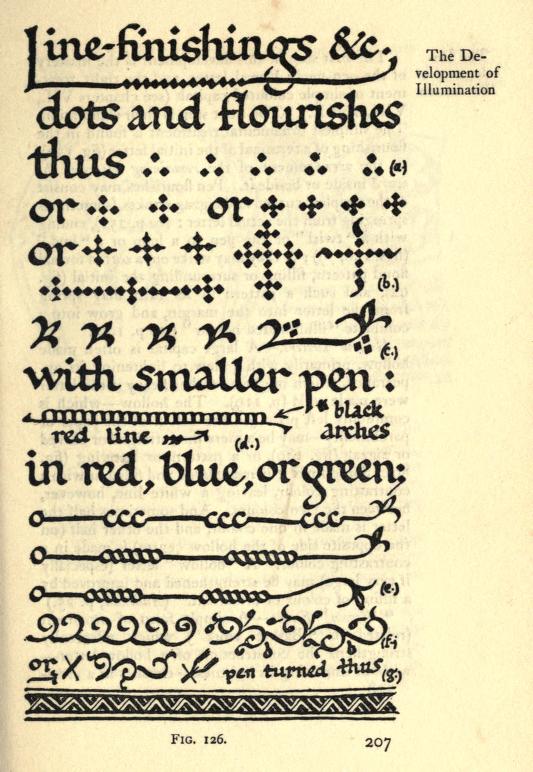 Line-finishings &c;
The De-
velopment of
Illumination
dots and flourishes
thus (a.)
or or
or
(b.)
(c.)
with smaller pen :
black
arches
red line (d.)
in red, blue, or green;
(e.)
(f.)
or pen turned thus (g.)
FIG. 126. 207